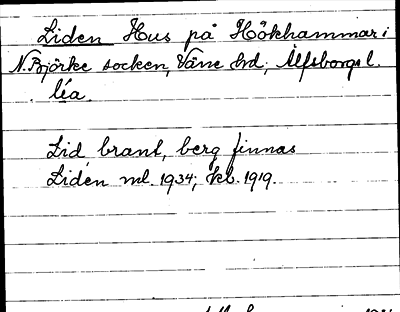 Liden Hus på Hökhammar i
N. Björke socken, Väne hd, Älfsborgs l.
lía
Lid, brant, berg finnas
Liden ml. 1934; kl. 1919.